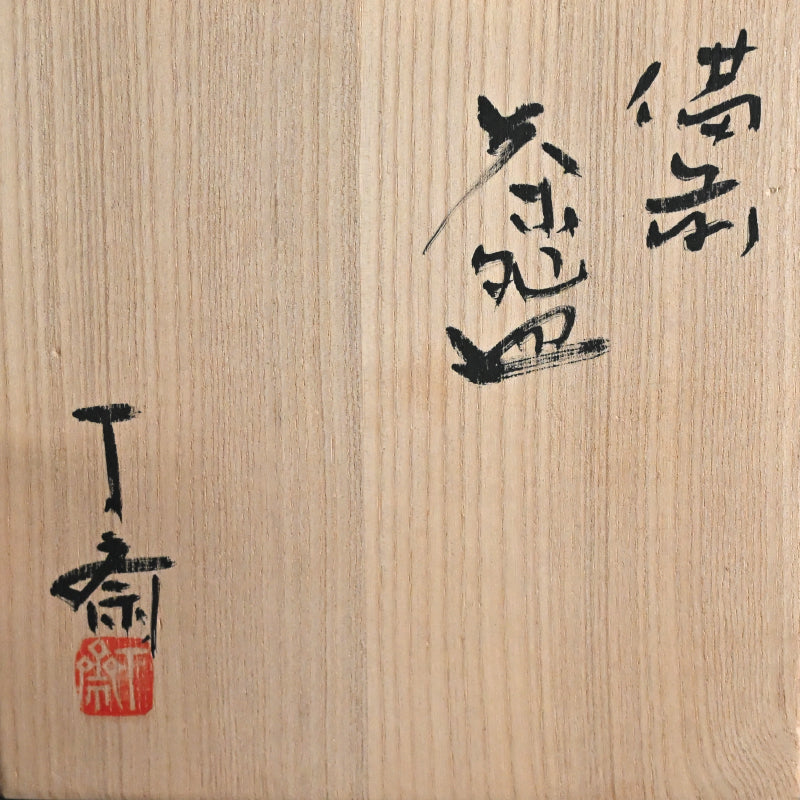 備前
茶盌
丁斎